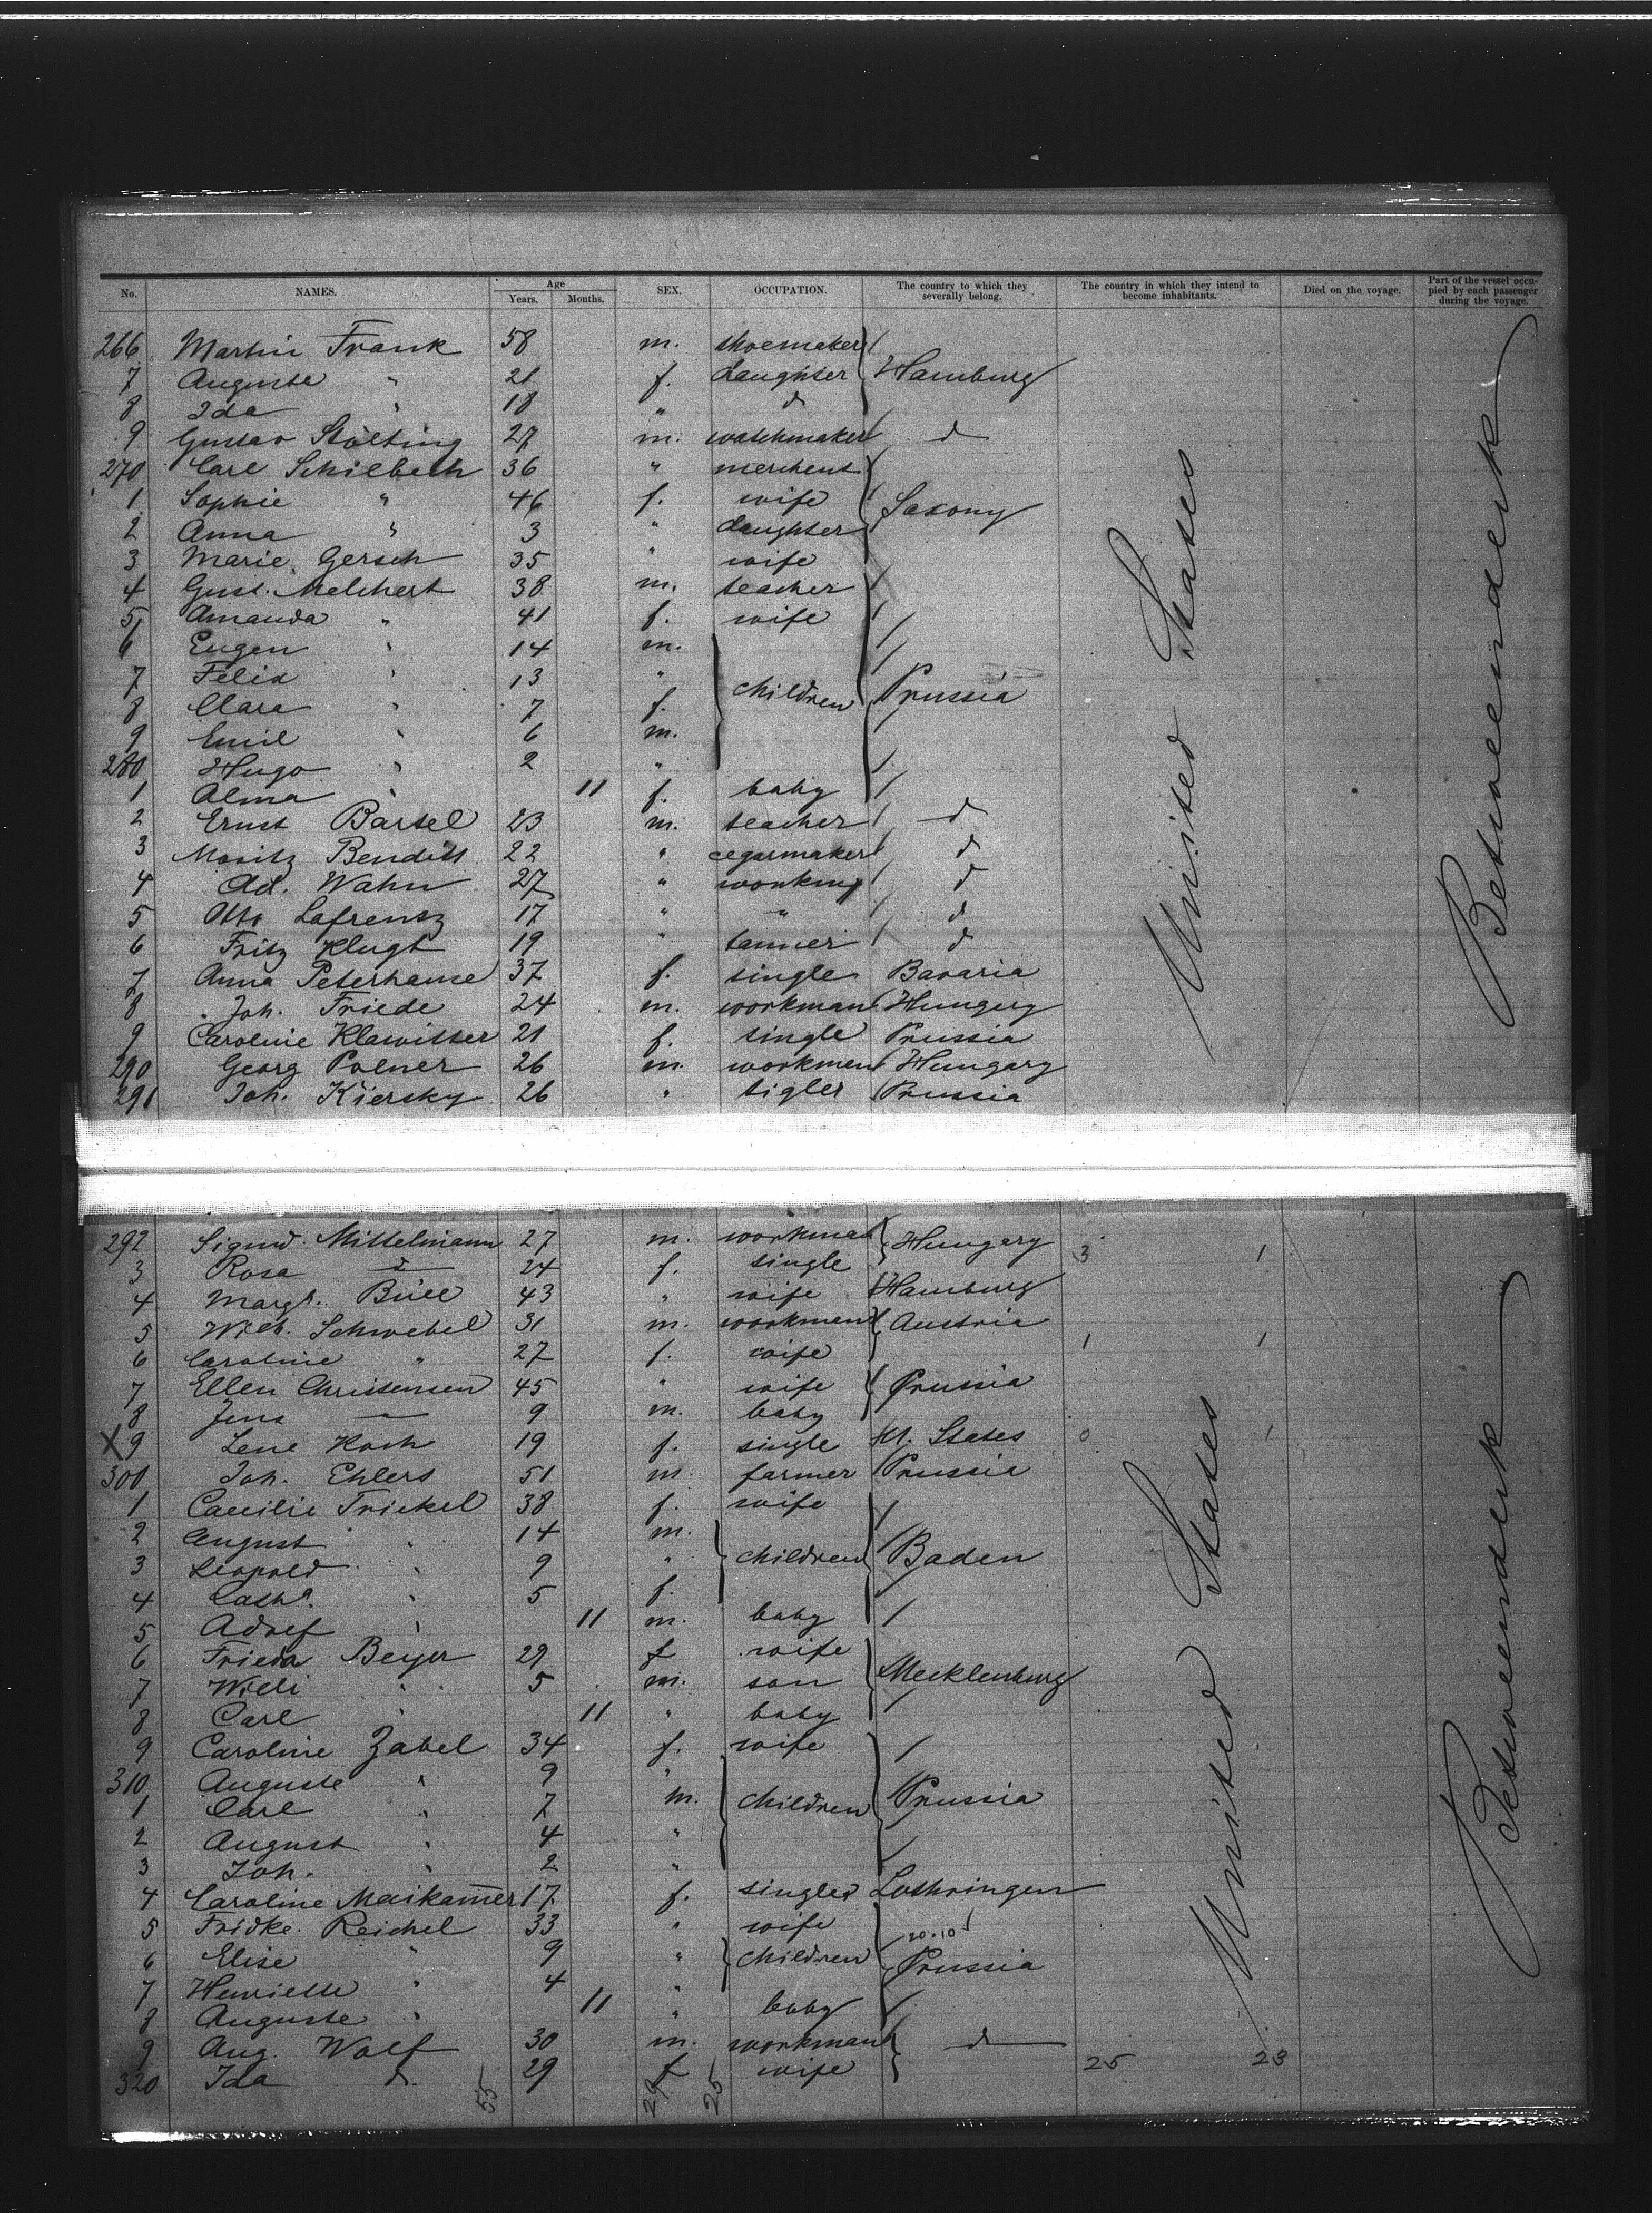 No. NAMES. Age Years. Months. SEX. OCCUPATION. The country to which they severally belong. The country in which they intend to become inhabitants. Died on the voyage. Part of the vessel occupied by each passenger during the voyage.
266 Martin Frank 58 m. shoemaker
7 Auguste " 21 f. daughter Hamburg
8 Ida " 18 " d
9 Gustav Stölting 27 m. watchmaker d
270 Carl Schilbach 36 " merchent
1 Sophie " 46 f. wife Saxony
2 Anna " 3 " daughter
3 Marie Gersch 35 " wife
4 Gust. Melchert 38 m. teacher
5 Amanda " 41 f. wife
6 Eugen " 14 m.
7 Felix " 13 " children Prussia
8 Clara " 7 f.
9 Emil " 6 m.
280 Hugo " 2 "
1 Alma " 11 f. baby
2 Ernst Bartel 23 m. teacher d
3 Moritz Benditt 22 " cegarmaker d
4 Ad. Wahn 27 " working d
5 Otto Lafrensz 17 " " d
6 Fritz Klugt 19 " tanner d
7 Anna Peterhanse 37 f. single Bavaria
8 Joh. Friede 24 m. workman Hungery
9 Caroline Klawitter 21 f. single Prussia
290 Georg Polner 26 m. workmen Hungary
291 Joh. Kiersky 26 " tigler Prussia
United States
Betweendeck
292 Sigmd. Mittelmann 27 m. workman Hungary 3 1
3 Rosa d 24 f. single
4 Margr. Büll 43 " wife Hamburg
5 Wilh. Schwebel 31 m. workmen Austria
6 Caroline " 27 f. wife 1 1
7 Ellen Christensen 45 " wife Prussia
8 Jens 9 m. baby
X 9 Lene Koch 19 f. single U. States 0 1
300 Joh. Ehlers 51 m. farmer Prussia
1 Caecilie Trickel 38 f. wife
2 August " 14 m.
3 Leopold " 9 " children Baden
4 Cath. " 5 f.
5 Adolf " 11 m. baby
6 Frieda Beyer 29 f wife
7 Willi " 5 m. son Mecklenburg
8 Carl " 11 " baby
9 Caroline Zabel 34 f. wife
310 Auguste " 9 "
1 Carl " 7 m. children Prussia
2 August " 4 "
3 Joh. " 2 "
4 Caroline Maikamer 17 f. single Lothringen
5 Fridke. Reichel 33 " wife 20.10
6 Elise " 9 " children Prussia
7 Henriette " 4 "
8 Auguste " 11 " baby
9 Aug. Wolf 30 m. workman d 25 23
320 Ida d. 29 f wife
55 29 25
United States
Betweendeck